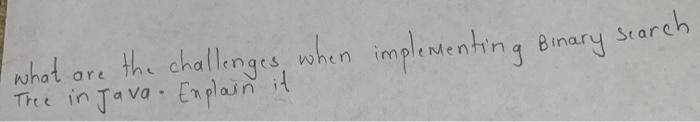 what are the challenges when implementing Binary search
Tree in Java. Explain it